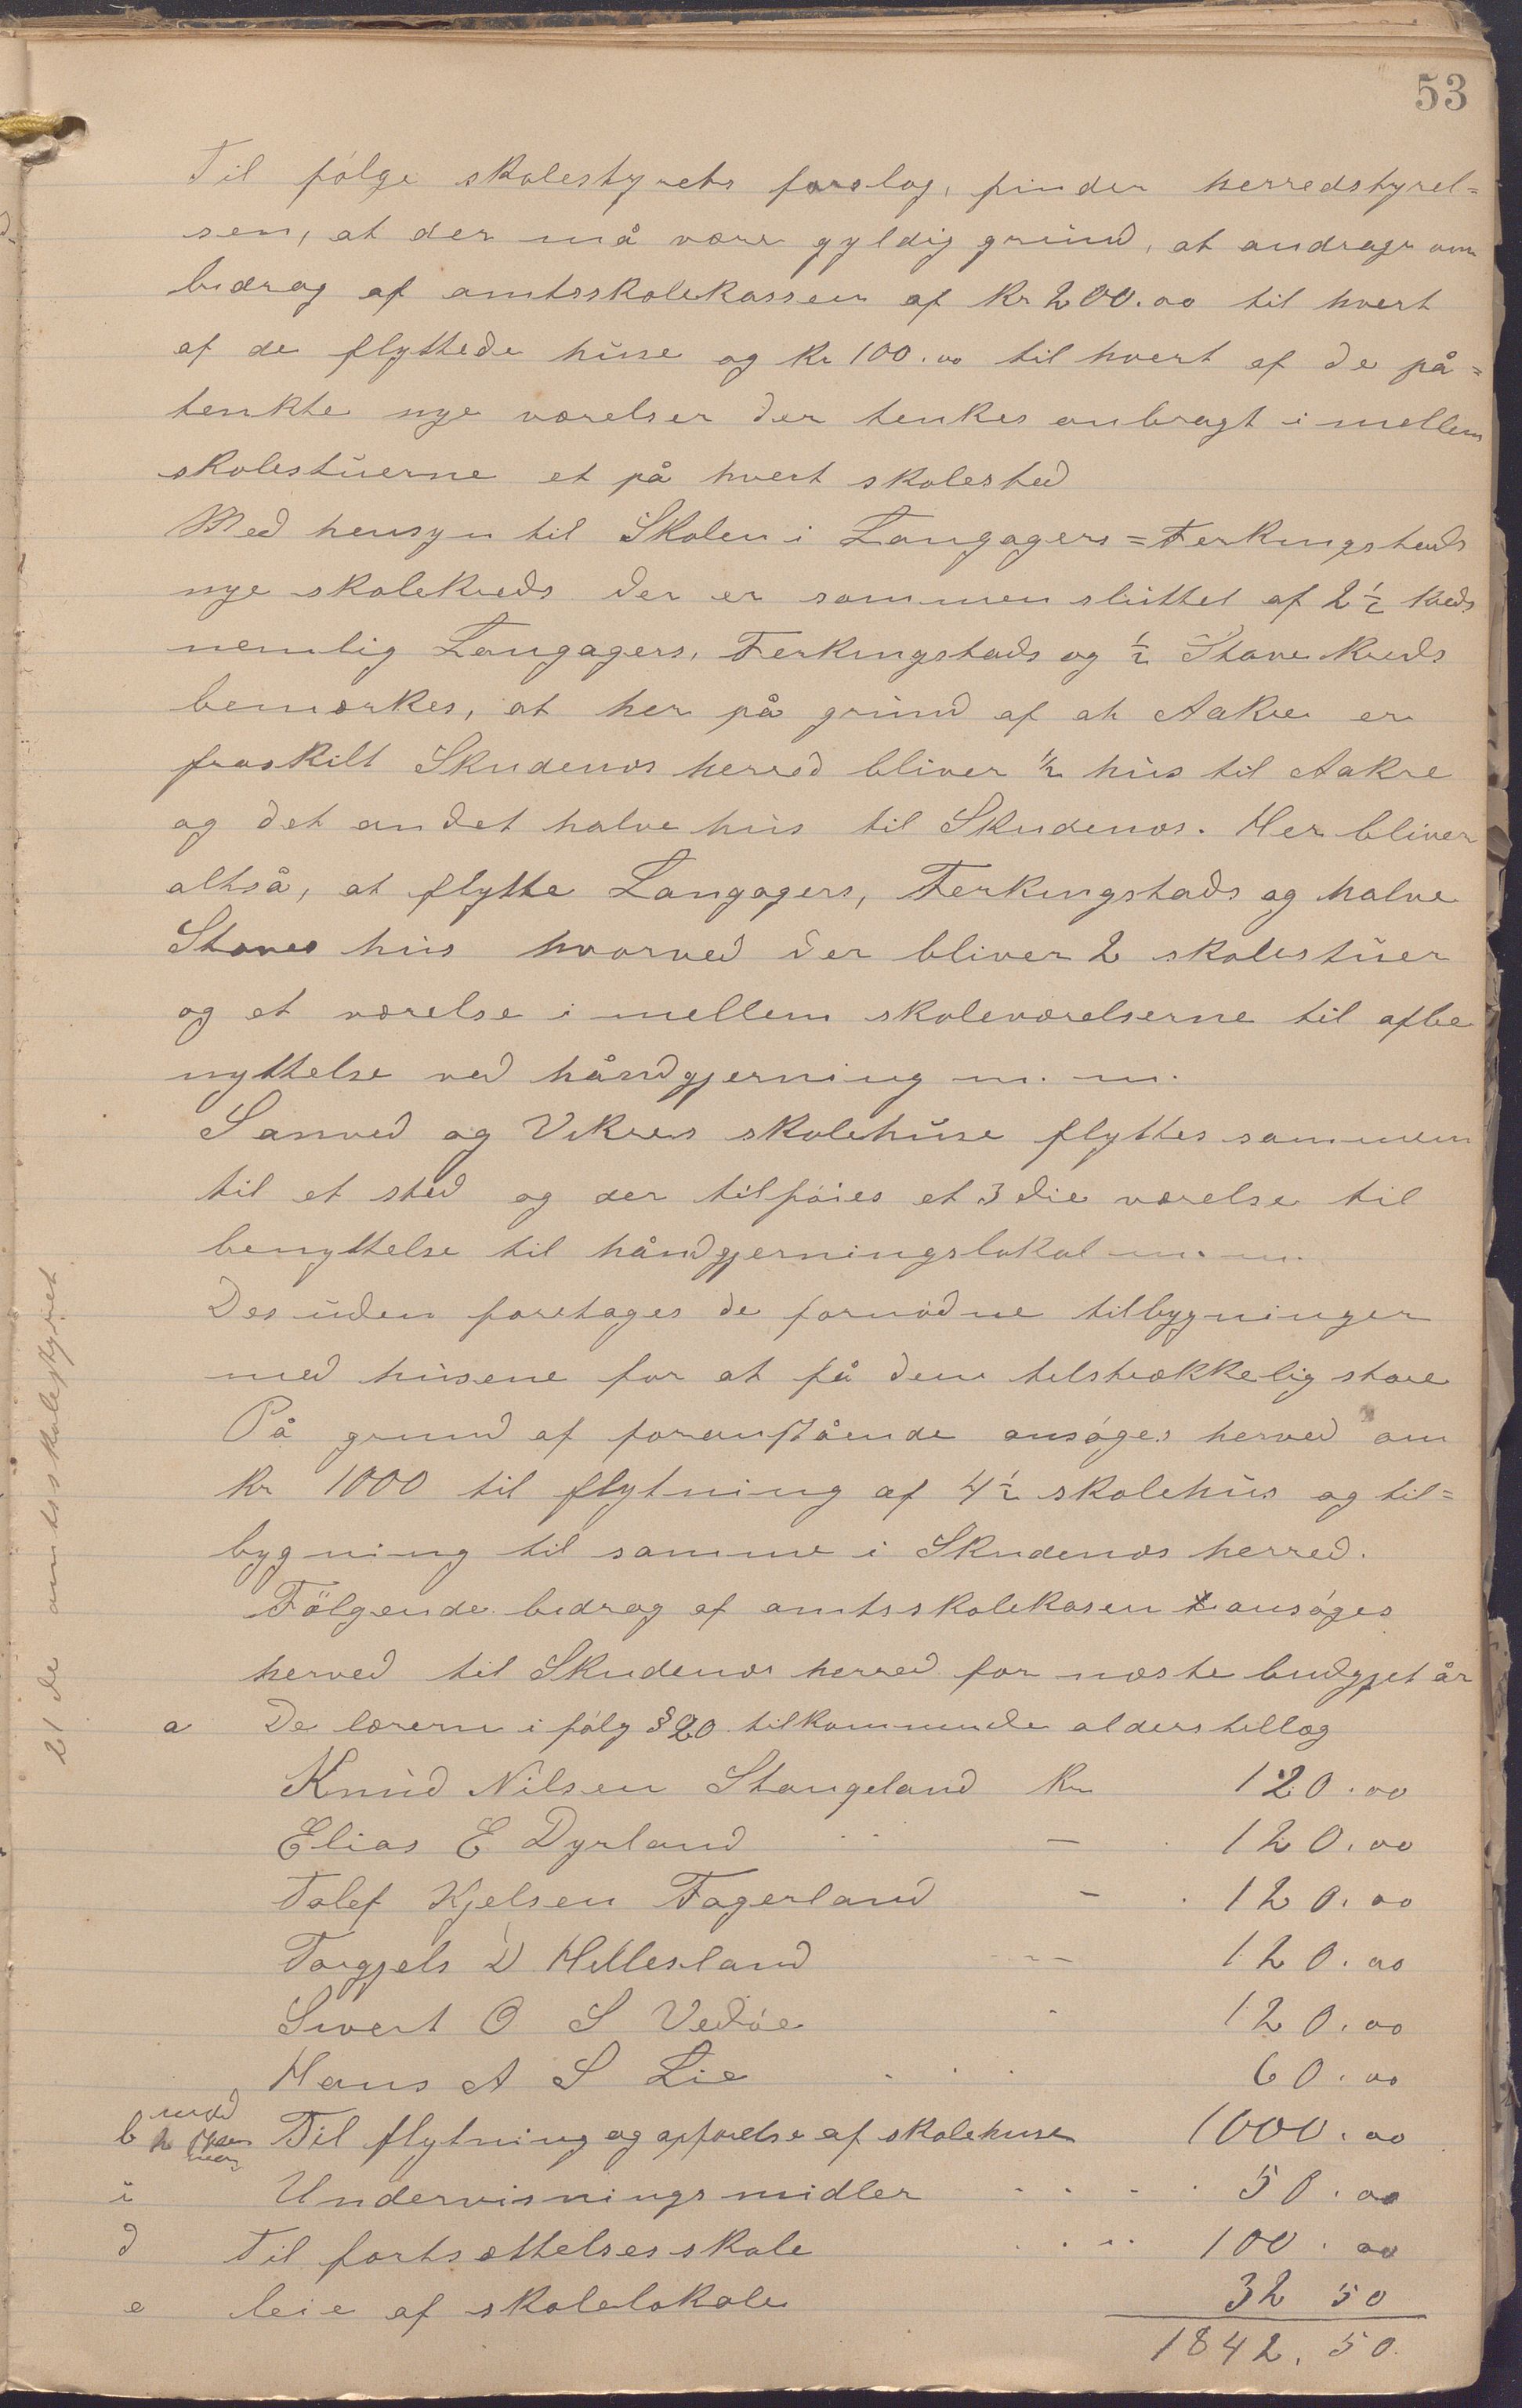 53
Til følge skolestyrets forslag, finder herredstyrel=
sen, at der må være gyldig grund, at andrage om
bidrag af amtsskolekassen af Kr 200.00 til hvert
af de flyttede huse og Kr 100.00 til hvert af de på=
tenkte nye værelser der tenkes anbragt i mellem
skolestuerne et på hvert skolested
Med hensyn til Skolen i Langagers=Ferkingstads
nye skolekreds der er sammensluttet af 2 1/2 kreds
nemlig Langagers, Ferkingstads og 1/2 Stave Kreds
bemærkes, at her på grund af at Aakre er
fraskilt Skudenes herred bliver 1/2 hus til Aakre
og det andet halve hus til Skudenes. Her bliver
altså, at flytte Langagers, Ferkingstads og halve
Staves hus hvorved der bliver 2 skolestuer
og et værelse i mellem skoleværelserne til afbe
nyttelse ved håndgjerning m. m.
Sanved og Vikres skolehuse flyttes sammen
til et sted og der tilføies et 3die værelse til
benyttelse til håndgjerningslokal m. m.
Des uden foretages de fornødne tilbygninger
med husene for at få dem tilstrækkelig store
På grund af foranstående ansøges herved om
Kr 1000 til flytning af 4 1/2 skolehus og til=
bygning til samme i Skudenes herred.
Følgende bidrag af amtsskolekasen ansøges
herved til Skudenes herred for næste budgjet år
a De lærerne i følg § 20 tilkommende alderstillæg
Knud Nilsen Stangeland Kr 120.00
Elias E Dyrland - 120.00
Tolef Kjelsen Fagerland - 120.00
Torgjels D Hillesland - 120.00
Sivert O S Vedøe 120.00
Hans A S Lie 60.00
b Til flytning og opførelse af skolehuse 1000.00
Undervisningsmidler 50.00
d Til fortsættelsesskole 100.00
e leie af skolelokale 32 50
1842.50
21 de amtsskolestyret